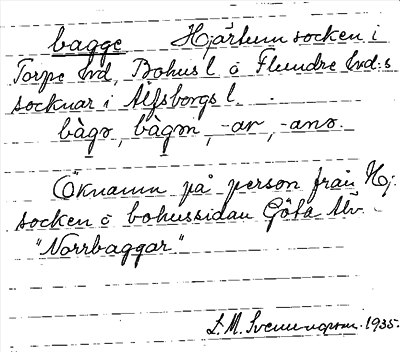 bagge Hjärtum socken i
Torpe hd, Bohusl o Flundre hd:s
socknar i Älfsborgs l.
bàgə, bàgɷn, -ar, -anə.
Öknamn på person från Hj.
socken o bohussidan Göta älv.
"Norrbaggar"
L.M. Svenungsson. 1935.